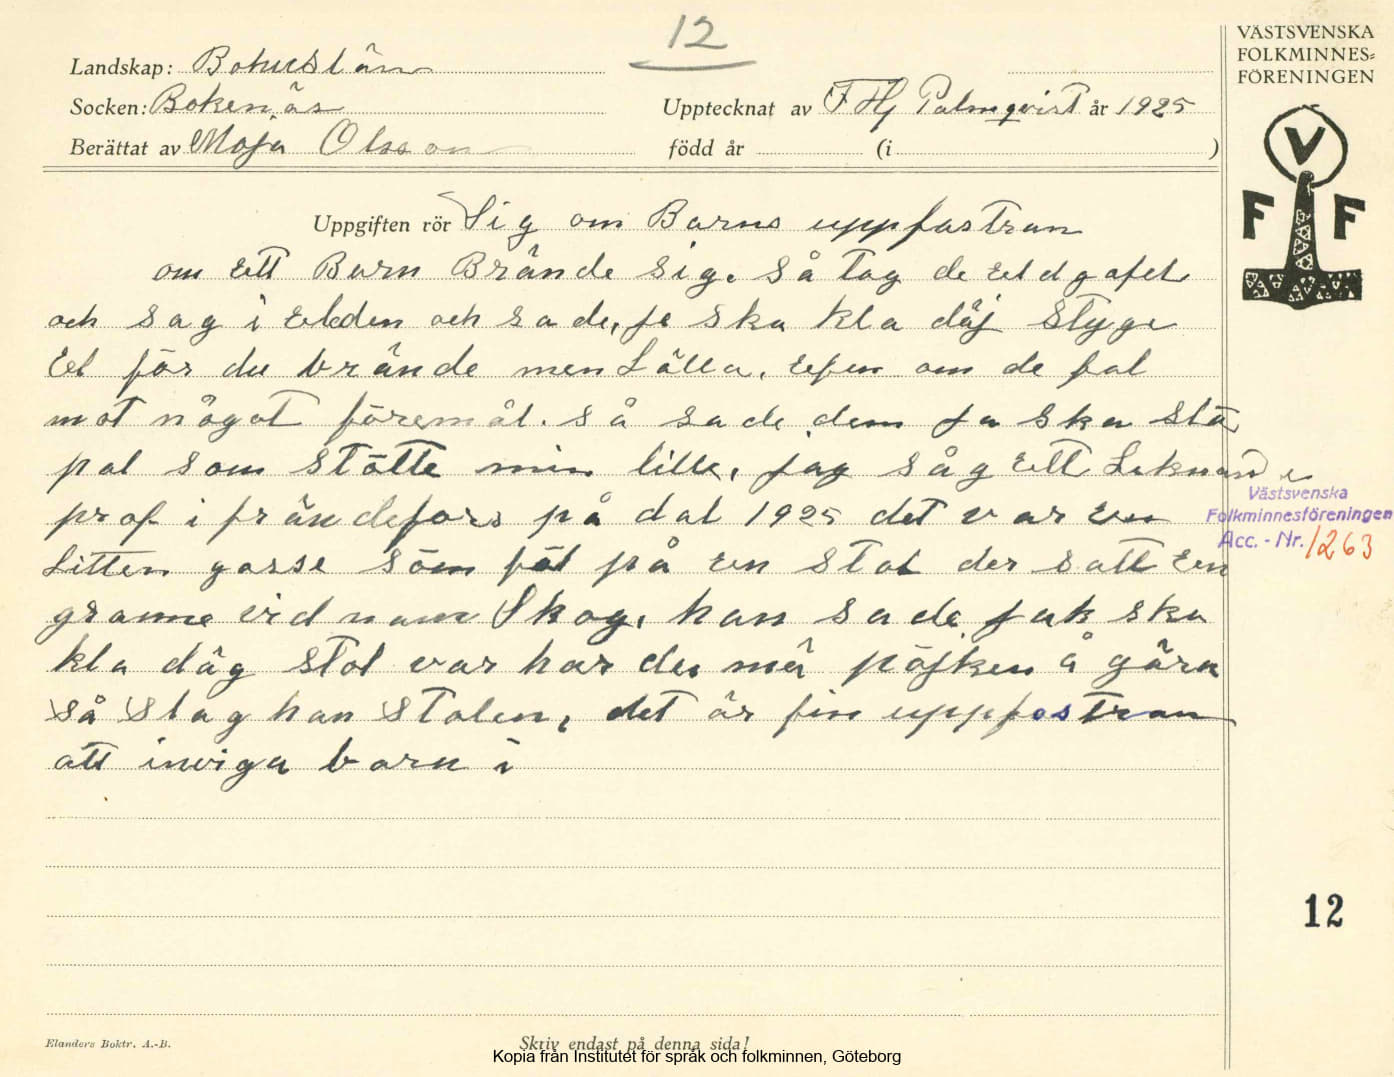 12
VÄSTSVENSKA
FOLKMINNES=
FÖRENINGEN
Landskap: Bohuslän
Socken: Bokenäs
Upptecknat av F Hj Palmqvist år 1925
Berättat av Maja Olsson
född år (i )
V
F F
Uppgiften rör Sig om Barns uppfostran
om Ett Barn Brände sig. så tog de Eldgafel
och sag i Elden och sade, ja ska kla däj Styge
El för du brände men Lälla. Efen om de fal
mot något föremål. så sade dem ja ska slå
pal som Stötte min lille, jag såg Ett Liknande
prof i frändefors på dal 1925 det var En
Litten gosse som föl på En Stol der satt En
granne vid namn Skog, han sade jak ska
kla däg Stol var har de mä pöjken å göra
så slag han Stolen, det är fin uppfostran
att inviga barn i
Västsvenska
Folkminnesföreningen
Acc. - Nr. 1263
12
Elanders Boktr. A.-B.
Skriv endast på denna sida!
Kopia från Institutet för språk och folkminnen, Göteborg